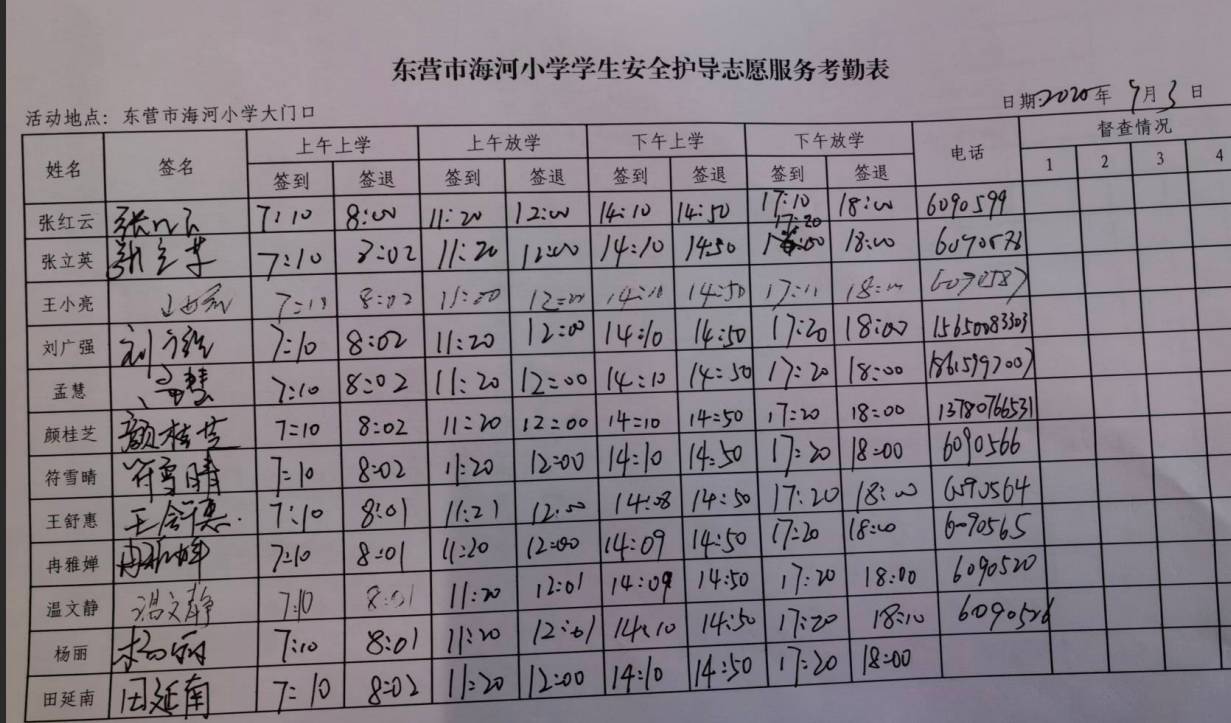 东营市海河小学学生安全护导志愿服务考勤表
活动地点：东营市海河小学大门口 日期2020年9月3日
姓名 签名 上午上学 上午放学 下午上学 下午放学 电话 督查情况
签到 签退 签到 签退 签到 签退 签到 签退 1 2 3 4
张红云 张红云 7:10 8:00 11:20 12:00 14:10 14:50 17:10 18:00 6090599
17:20
张立英 张立英 7:10 8:02 11:20 12:00 14:10 14:50 18:00
王小亮 8:02 14:50 17:11
刘广强 刘广强 7:10 8:02 11:20 12:00 14:10 14:50 17:20 18:00 15650083303
孟慧 孟慧 7:10 8:02 11:20 12:00 14:10 14:50 17:20 18:00 18615997007
颜桂芝 颜桂芝 7:10 8:02 11:20 12:00 14:10 14:50 17:20 18:00 13780766531
符雪晴 符雪晴 7:10 8:02 11:20 12:00 14:10 14:50 17:20 18:00 6090566
王舒惠 王舒惠 7:10 8:01 11:21 12:00 14:08 14:50 17:20 18:00 6090564
冉雅婵 冉雅婵 7:10 8:01 11:20 12:00 14:09 14:50 17:20 18:00 6090565
温文静 温文静 7:10 8:01 11:20 12:01 14:09 14:50 17:20 18:00 6090520
杨丽 杨丽 7:10 8:01 11:20 12:01 14:10 14:50 17:20 18:10 6090526
田延南 田延南 7:10 8:02 11:20 12:00 14:10 14:50 17:20 18:00